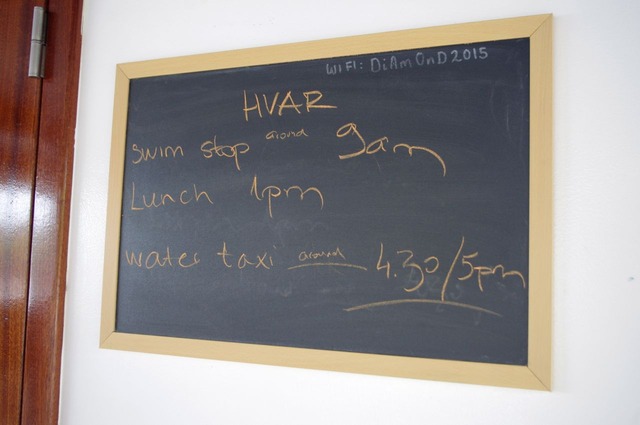 WIFI: DiAmOnD2015
HVAR
swim stop around 9am
Lunch 1pm
water taxi around 4.30/5pm